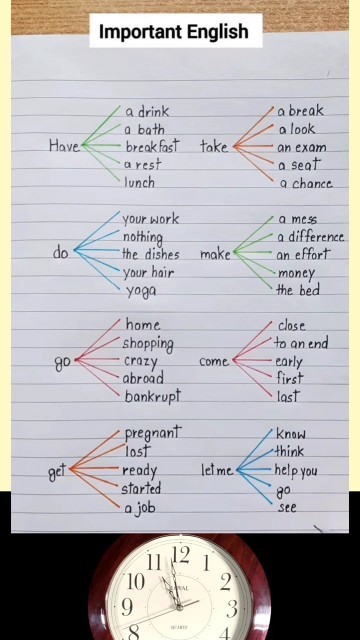 Important English
Have
a drink
a bath
breakfast
a rest
lunch
take
a break
a look
an exam
a seat
a chance
do
your work
nothing
the dishes
your hair
yoga
make
a mess
a difference
an effort
money
the bed
go
home
shopping
crazy
abroad
bankrupt
come
close
to an end
early
first
last
get
pregnant
lost
ready
started
a job
let me
know
think
help you
go
see
11 12 1
10 2
9 3
8 4
QUARTZ